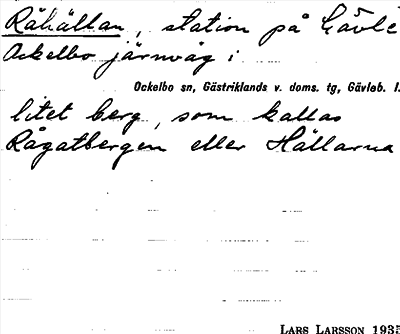 Råhällan, station på Gävle
Ockelbo järnväg i
Ockelbo sn, Gästriklands v. doms. tg, Gävleb. l.
litet berg, som kallas
Rågatbergen eller Hällarna
LARS LARSSON 1935